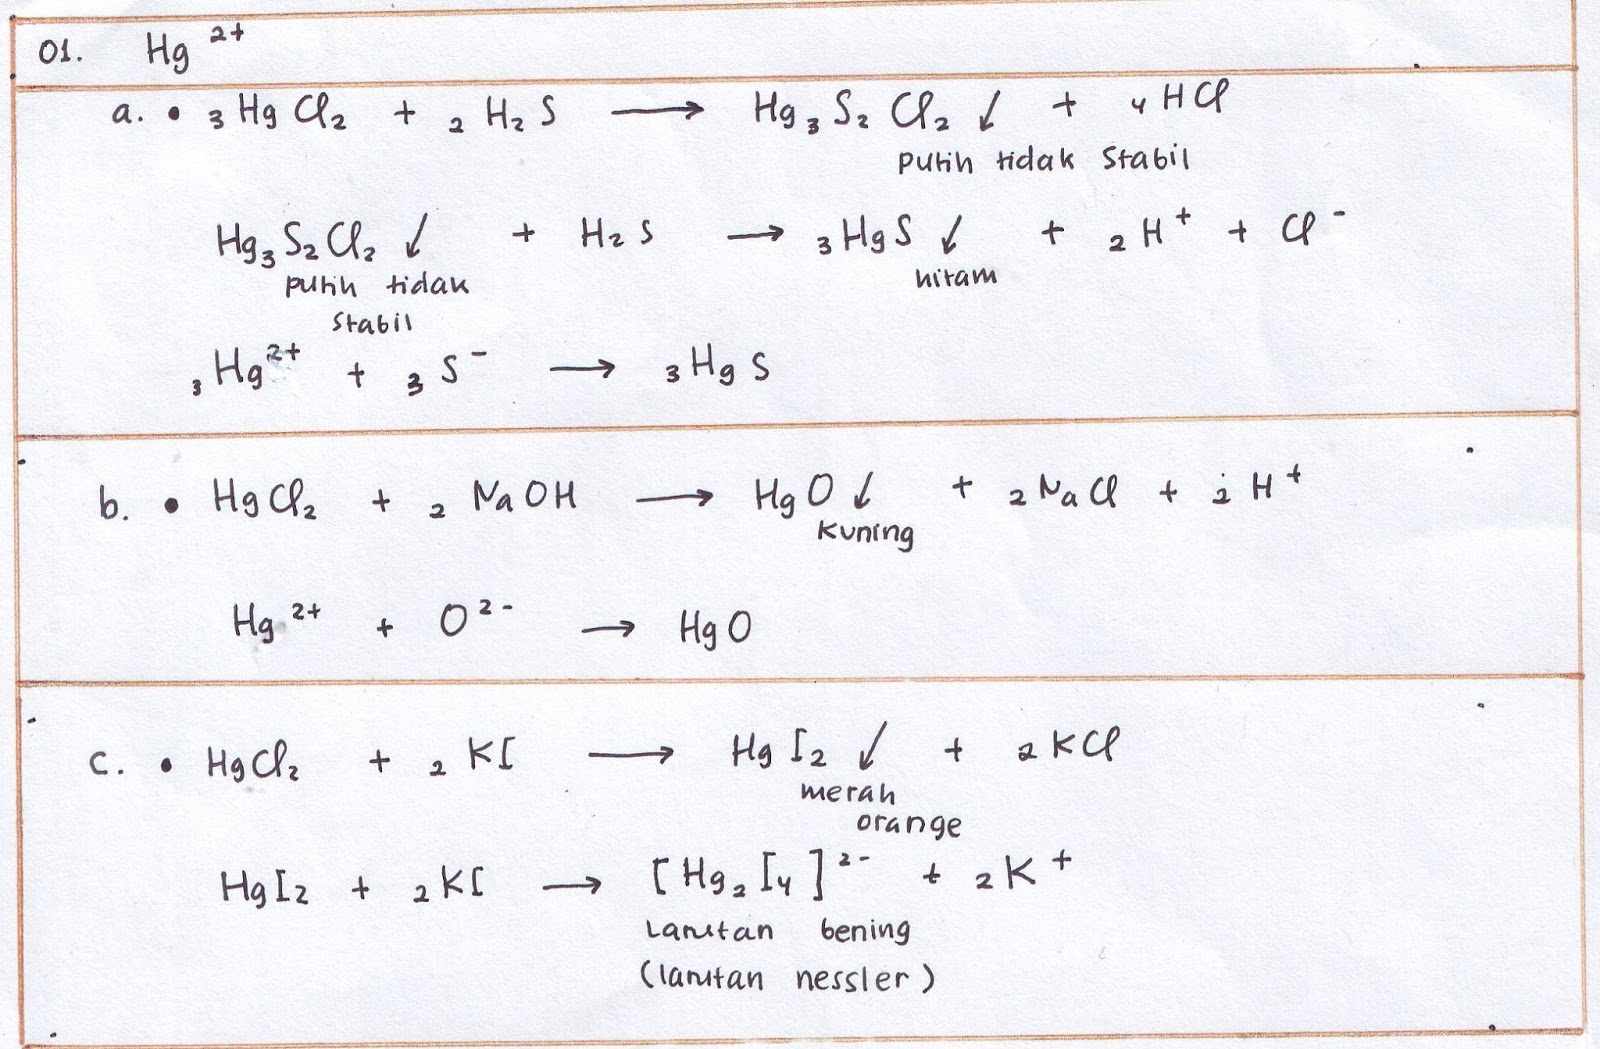 01. Hg²⁺
a. • ₃HgCl₂ + ₂H₂S ⟶ Hg₃S₂Cl₂ ↓ + ₄HCl
putih tidak stabil
Hg₃S₂Cl₂ ↓ + H₂S ⟶ ₃HgS ↓ + ₂H⁺ + Cl⁻
putih tidak hitam
stabil
₃Hg²⁺ + ₃S⁻ ⟶ ₃HgS
b. • HgCl₂ + ₂NaOH ⟶ HgO ↓ + ₂NaCl + ₂H⁺
kuning
Hg²⁺ + O²⁻ ⟶ HgO
c. • HgCl₂ + ₂KI ⟶ HgI₂ ↓ + ₂KCl
merah
orange
HgI₂ + ₂KI ⟶ [Hg₂I₄]²⁻ + ₂K⁺
Larutan bening
(larutan nessler)